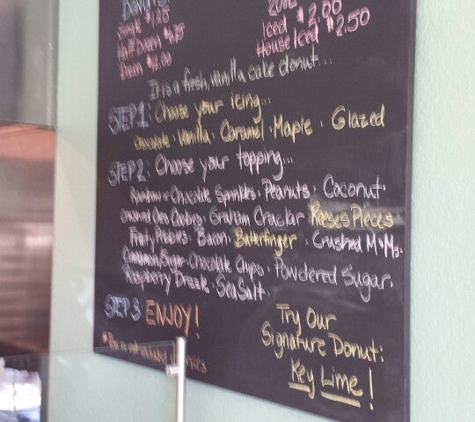 Single $1.25
Half Dozen
Dozen
20oz
Iced $2.00
House Iced $2.50
It is a fresh, vanilla cake donut...
STEP 1: Choose your icing...
Chocolate · Vanilla · Caramel · Maple · Glazed
STEP 2: Choose your topping...
Rainbow or Chocolate Sprinkles · Peanuts · Coconut
Crushed Oreo Cookies · Graham Cracker · Reeses Pieces
Fruity Pebbles · Bacon · Butterfinger · Crushed M&Ms
Cinnamon Sugar · Chocolate Chips · Powdered Sugar
Raspberry Drizzle · Sea Salt
STEP 3 ENJOY!
*This is not
Try Our
Signature Donut:
Key Lime!